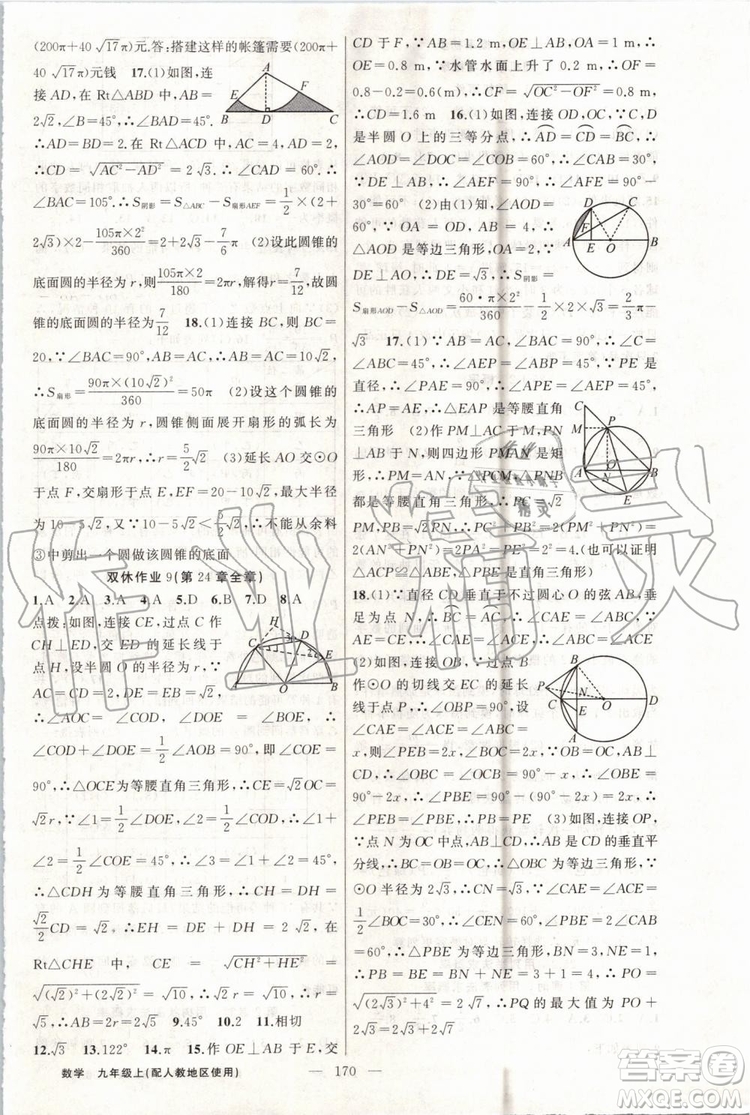 (200π+40 √17π)元.答：搭建这样的帐篷需要(200π+
40 √17π)元钱　17.(1)如图，连
接 AD，在 Rt△ABD 中，AB＝
2√2，∠B＝45°，∴∠BAD＝45°.
∴AD＝BD＝2.在 Rt△ACD 中，AC＝4，AD＝2，
∴CD＝√(AC²－AD²)＝2√3，∴∠CAD＝60°.∴∠
BAC＝105°.∴S阴影＝S△ABC－S扇形AEF＝1/2×(2＋
2√3)×2－105π×2²/360＝2＋2√3－7/6π　(2)设此圆锥的
底面圆的半径为 r，则105π×2/180＝2πr，解得 r＝7/12，故圆
锥的底面圆的半径为7/12　18.(1)连接 BC，则 BC＝
20，∵∠BAC＝90°，AB＝AC，∴AB＝AC＝10√2，
∴S扇形＝90π×(10√2)²/360＝50π　(2)设这个圆锥的底
面圆的半径为 r，圆锥侧面展开扇形的弧长为
90π×10√2/180＝5√2π　(3)延长 AO 交⊙O
于点 F，交扇形于点 E，EF＝20－10√2，最大半径
为 10－5√2，∵r＝5√2/2，10－5√2＜5√2/2，∴不能从余料
③中剪出一个圆做该圆锥的底面
双休作业 9(第 24 章全章)
1.A　2.A　3.A　4.C　5.D　6.B　7.D　8.A
点拨：如图，连接 CE，过点 C 作
CH⊥ED，交 DE 的延长线于
点 H，设半圆 O 的半径为 r，∵
AC＝CD＝2，DE＝EB＝√2，
∴∠AOC＝∠COD，∠DOE＝∠BOE，∴
∠COD＋∠DOE＝1/2∠AOB＝90°，即∠COE＝
90°，∴△COE 为等腰直角三角形，∴CE＝√2OC＝
√2r，∵∠1＝1/2∠DOE，∠2＝1/2∠COD，∴∠1＋
∠2＝1/2∠COE＝45°，∴∠CDH＝∠1＋∠2＝45°，
∴△CDH 为等腰直角三角形，∴CH＝DH＝
√2/2CD＝√2，∴HE＝DE＋DH＝2√2，在
Rt△CHE 中，CE＝√(CH²＋HE²)＝
√((√2)²＋(2√2)²)＝√10，∴√2r＝√10，∴r＝√5，
∴AB＝2r＝2√5　9.45°　10.2　11.相切
12.√3　13.122°　14.√2　15.作 OE⊥AB 于 E，交
CD 于 F，∵AB＝1.2 m，OE⊥AB，OA＝1 m，∴
OE＝0.8 m，∵水管水面上升了 0.2 m，∴OF＝
0.8－0.2＝0.6(m)，∴CF＝√(OC²－OF²)＝0.8 m，
∴CD＝1.6 m　16.(1)如图，连接 OD，OC，∵C，D
是半圆 O 上的三等分点，∴AD＝CD＝BC，∴
∠AOD＝∠COD＝∠COB＝60°，∴∠CAB＝30°，
∵DE⊥AB，∴∠AEF＝90°，∴∠AFE＝90°－
30°＝60°　(2)由(1)知，∠AOD
＝60°，∵OA＝OD，AB＝4，∴
△AOD 是等边三角形，OA＝2，
∵DE⊥AO，∴DE＝√3，∴S阴影＝
S扇形AOD－S△AOD＝60·π×2²/360－1/2×2×√3＝2/3π－
√3　17.(1)∵AB＝AC，∠BAC＝90°，∴∠C＝
∠ABC＝45°，∴∠AEP＝∠ABP＝45°，∵PE 是
直径，∴∠PAE＝90°，∴∠APE＝∠AEP＝45°，
∴AP＝AE，∴△EAP 是等腰直角
三角形　(2)作 PM⊥AC 于 M，PN⊥
AB 于 N，则四边形 PMAN 是矩
形，∴PM＝AN，∵△PCM，△PNB
都是等腰直角三角形，∴PC＝√2
PM，PB＝√2PN，∴PC²＋PB²＝2(PM²＋PN²)＝
2(AN²＋PN²)＝2PA²＝PE²＝2²＝4(也可以证明
△ACP≌△ABE，△PBE 是直角三角形)
18.(1)∵直径 CD 垂直于不过圆心 O 的弦 AB，垂
足为点 N，∴CB＝AC，∴∠CAE＝∠ABC，∵
AE＝CE，∴∠CAE＝∠ACE，∴∠ABC＝∠ACE
(2)如图，连接 OB，∵过点 B 作
作⊙O 的切线交 EC 的延长
线于点 P，∴∠OBP＝90°，设
∠CAE＝∠ACE＝∠ABC＝x，
则∠PEB＝2x，∵OB＝OC，AB⊥CD，
∴∠OBC＝∠OCB＝90°－x，∴∠BOC＝180°－
2(90°－x)＝2x，∴∠OBE＝90°－2x，∴∠PBE＝
90°－(90°－2x)＝2x，∴PB＝PE　(3)如图，连接
OP，∵点 N 为 OC 中点，AB⊥CD，∴AB 是 CD 的垂直平
分线，∴BC＝OB＝OC，∴△OBC 为等边三角形，∵
⊙O 半径为 2√3，∴CN＝√3，∵∠CAE＝∠ACE＝
1/2∠BOC＝30°，∴∠CEN＝60°，∠PBE＝2∠CAB＝
60°，∴△PBE 为等边三角形，∴PB＝BE＝PO＝
√((2√3)²＋4²)＝2√7，∴PQ 的最大值为 PO＋
2√3＝2√3＋2√7
数学　九年级上(配人教地区使用)　— 170 —